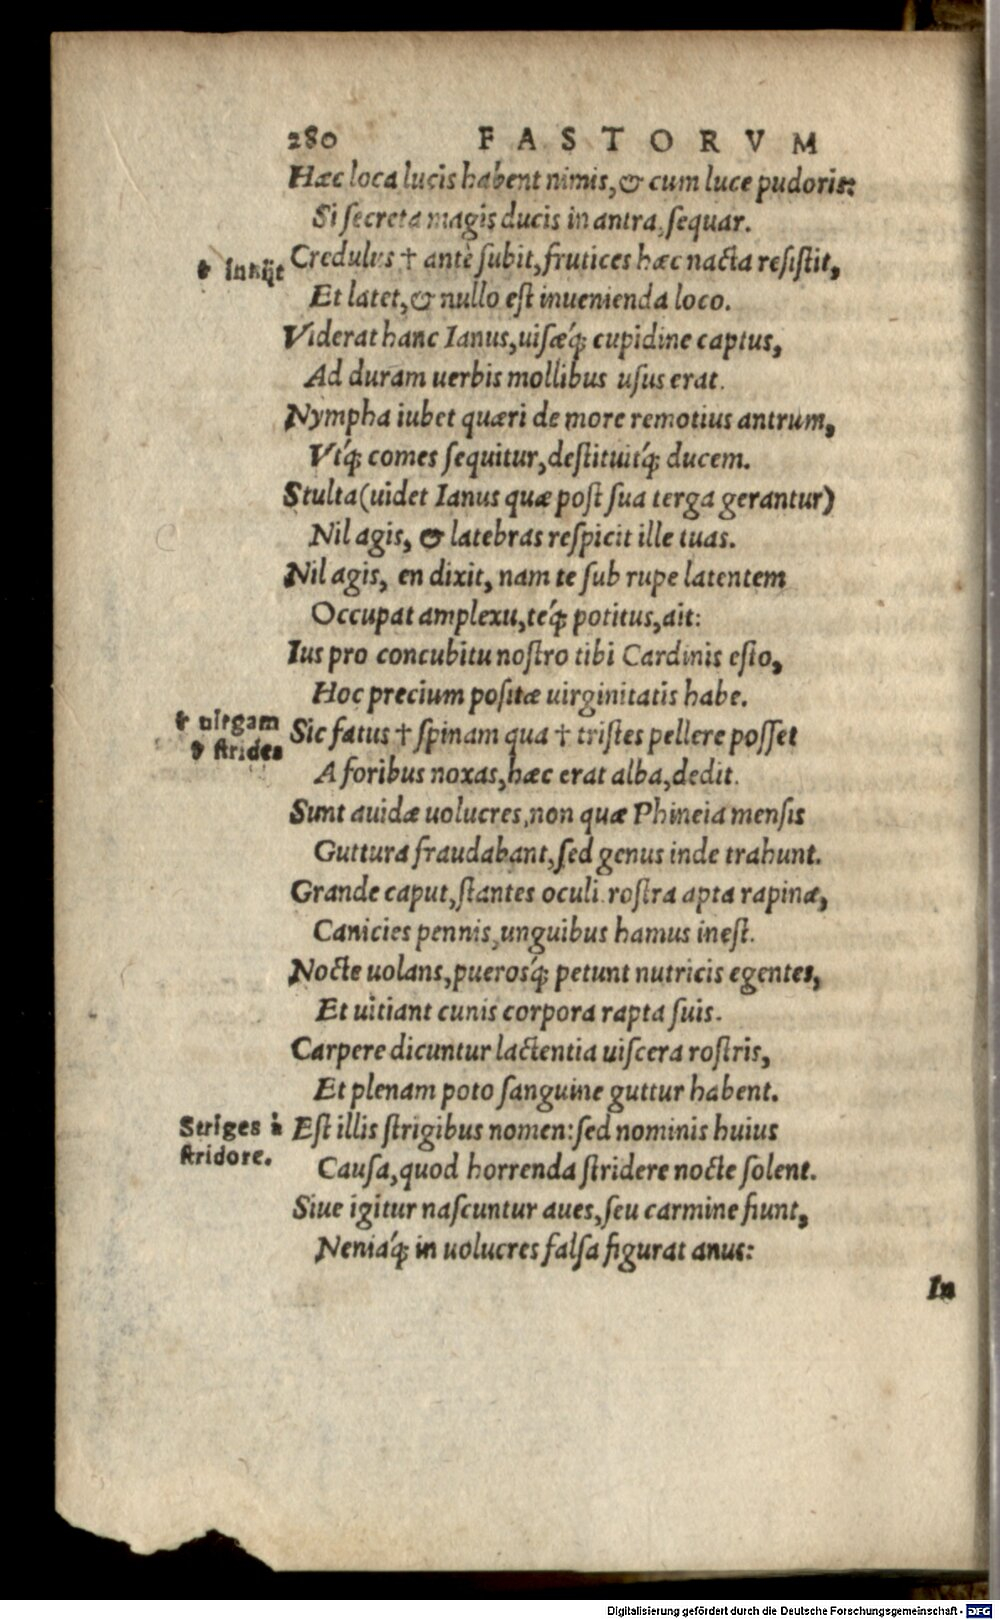 280 FASTORVM
Hæc loca lucis habent nimis, & cum luce pudoris:
Si secreta magis ducis in antra, sequar.
Credulus † antè subit, frutices hæc nacta resistit,
Et latet, & nullo est inuenienda loco.
Viderat hanc Ianus, uisæq́; cupidine captus,
Ad durãm uerbis mollibus usus erat.
Nympha iubet quæri de more remotius antrum,
Vtq́; comes sequitur, destituitq́; ducem.
Stulta (uidet Ianus quæ post sua terga gerantur)
Nil agis, & latebras respicit ille tuas.
Nil agis, en dixit, nam te sub rupe latentem
Occupat amplexu, teq́; potitus, ait:
Ius pro concubitu nostro tibi Cardinis esto,
Hoc precium positæ uirginitatis habe.
† uirgam
† strides
Sic fatus † spinam qua † tristes pellere posset
A foribus noxas, hæc erat alba, dedit.
Sunt auidæ uolucres, non quæ Phineia mensis
Guttura fraudabant, sed genus inde trahunt.
Grande caput, stantes oculi, rostra apta rapinæ,
Canicies pennis, unguibus hamus inest.
Nocte uolans, puerosq́; petunt nutricis egentes,
Et uitiant cunis corpora rapta suis.
Carpere dicuntur lactentia uiscera rostris,
Et plenam poto sanguine guttur habent.
Striges à
stridore.
Est illis strigibus nomen: sed nominis huius
Causa, quod horrenda stridere nocte solent.
Siue igitur nascuntur aues, seu carmine fiunt,
Neniaq́; in uolucres falsa figurat anus:
In
Digitalisierung gefördert durch die Deutsche Forschungsgemeinschaft - DFG